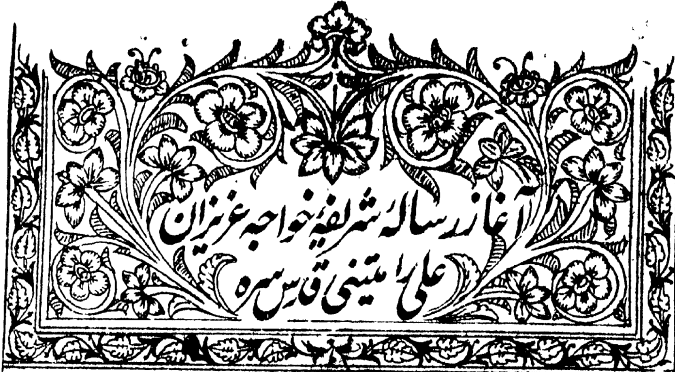 آغاز رسالۀ شریفۀ خواجه عزیزان
علی رامتینی قدس سره